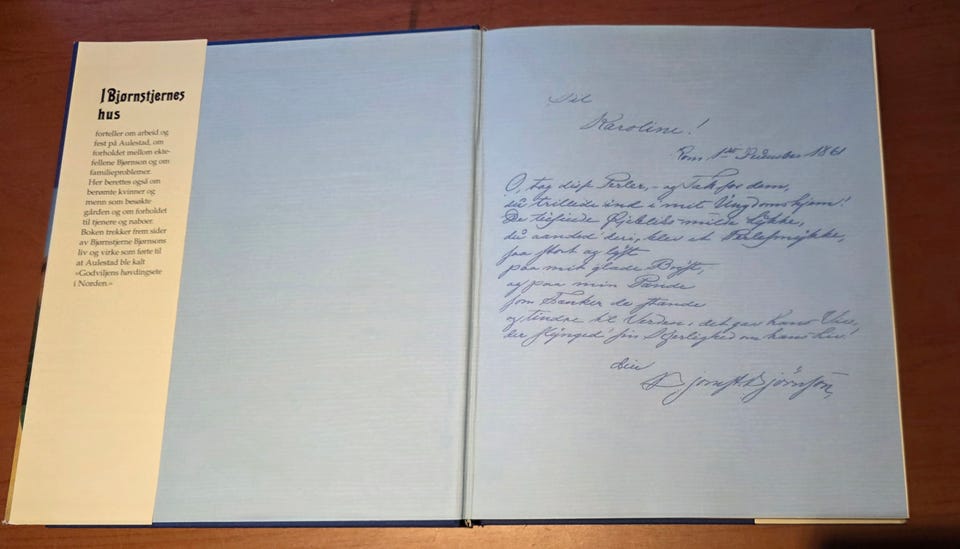 I Bjørnstjernes
hus
forteller om arbeid og
fest på Aulestad, om
forholdet mellom ekte-
fellene Bjørnson og om
familieproblemer.
Her berettes også om
berømte kvinner og
menn som besøkte
gården og om forholdet
til tjenere og naboer.
Boken trekker frem sider
av Bjørnstjerne Bjørnsons
liv og virke som førte til
at Aulestad ble kalt
«Godviljens høvdingsete
i Norden.»
Til
Karoline!
Rom, 1ste December 1861
O, tag disse Perler, – og Tak for dem,
du trillede ind i mit Ungdomshjem!
De tiested
du aanded deri, blev et Perlesmykke,
saa stort og
paa mit glade Bryst,
og paa min Pande
som Tanker de stande
og tindre til Verden, det gav hans Viv,
der slynged' sin Kjærlighed om hans Liv!
Din
Bjørnst. Bjørnson